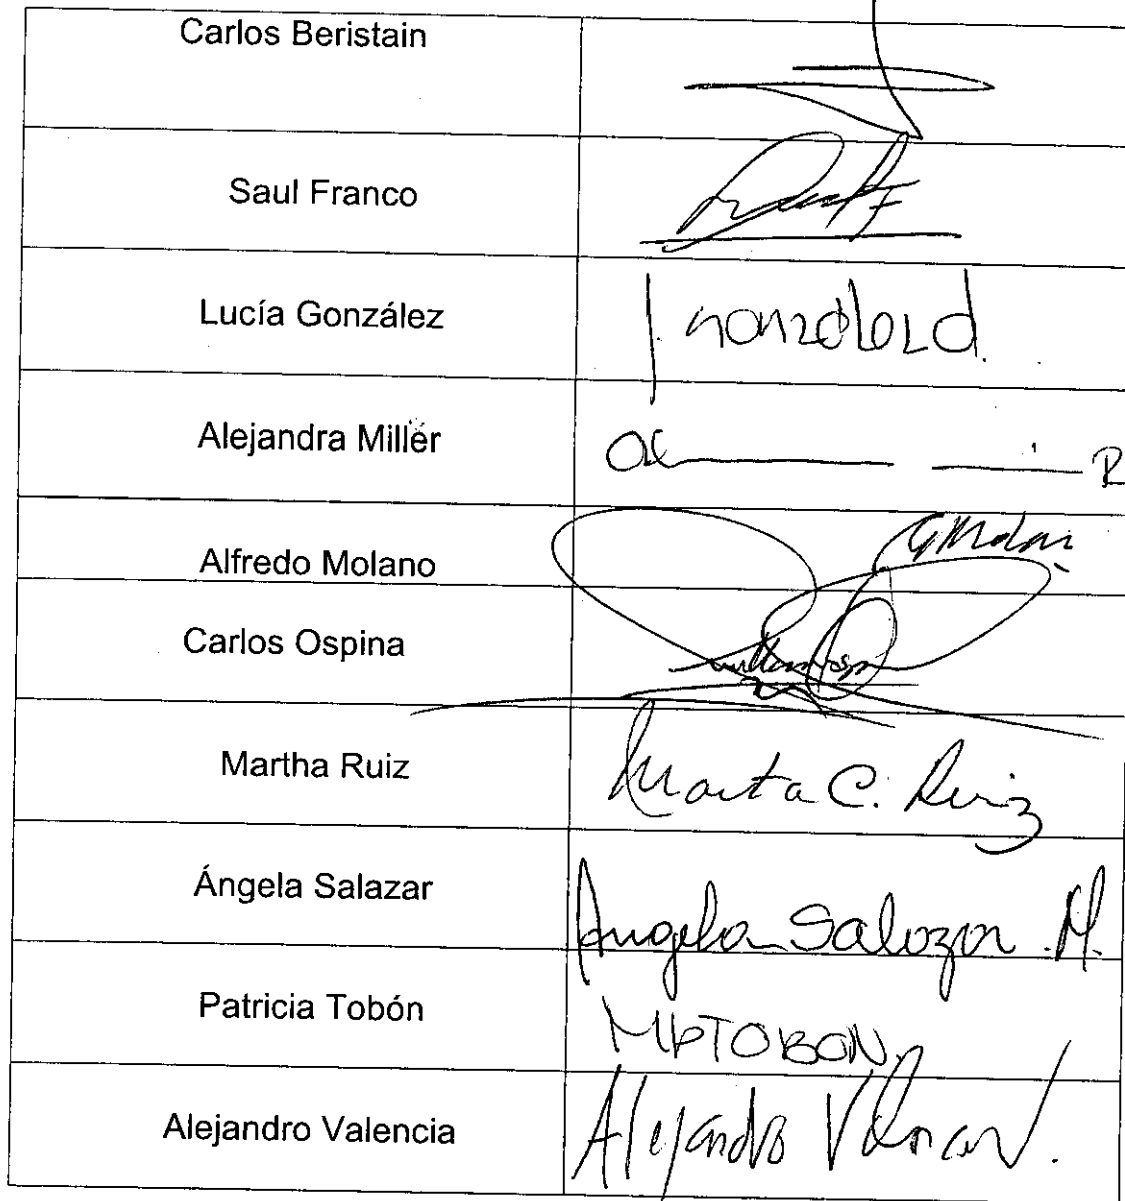 Carlos Beristain
Saul Franco
Lucía González
Alejandra Miller R
Alfredo Molano
Carlos Ospina
Martha Ruiz Marta C. Ruiz
Ángela Salazar Angela Salazar M.
Patricia Tobón MPTOBON
Alejandro Valencia Alejandro V.